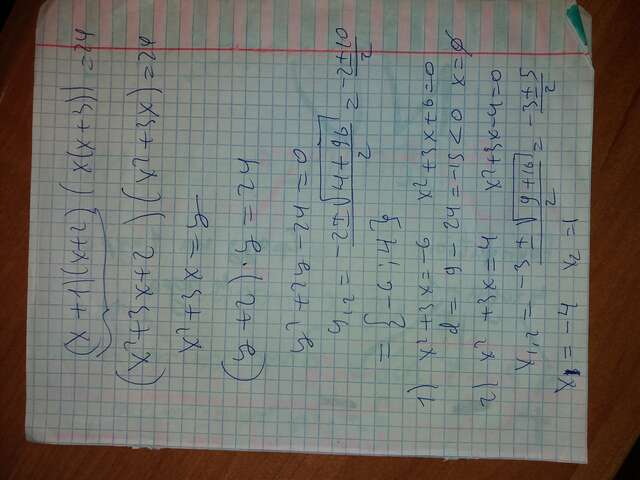 (x + 1)(x + 2) (x(x + 3)) = 24
(x² + 3x + 2) (x² + 3x) = 24
x² + 3x = y
(y + 2) · y = 24
y² + 2y - 24 = 0
y₁,₂ = (-2 ± √(4 + 96))/2 = (-2 ± 10)/2
= {-6 ; 4}
1) x² + 3x = -6 x² + 3x + 6 = 0
d = 9 - 24 = -15 < 0 x = ∅
2) x² + 3x = 4 x² + 3x - 4 = 0
x₁,₂ = (-3 ± √(9 + 16))/2 = (-3 ± 5)/2
x₁ = -4 x₂ = 1